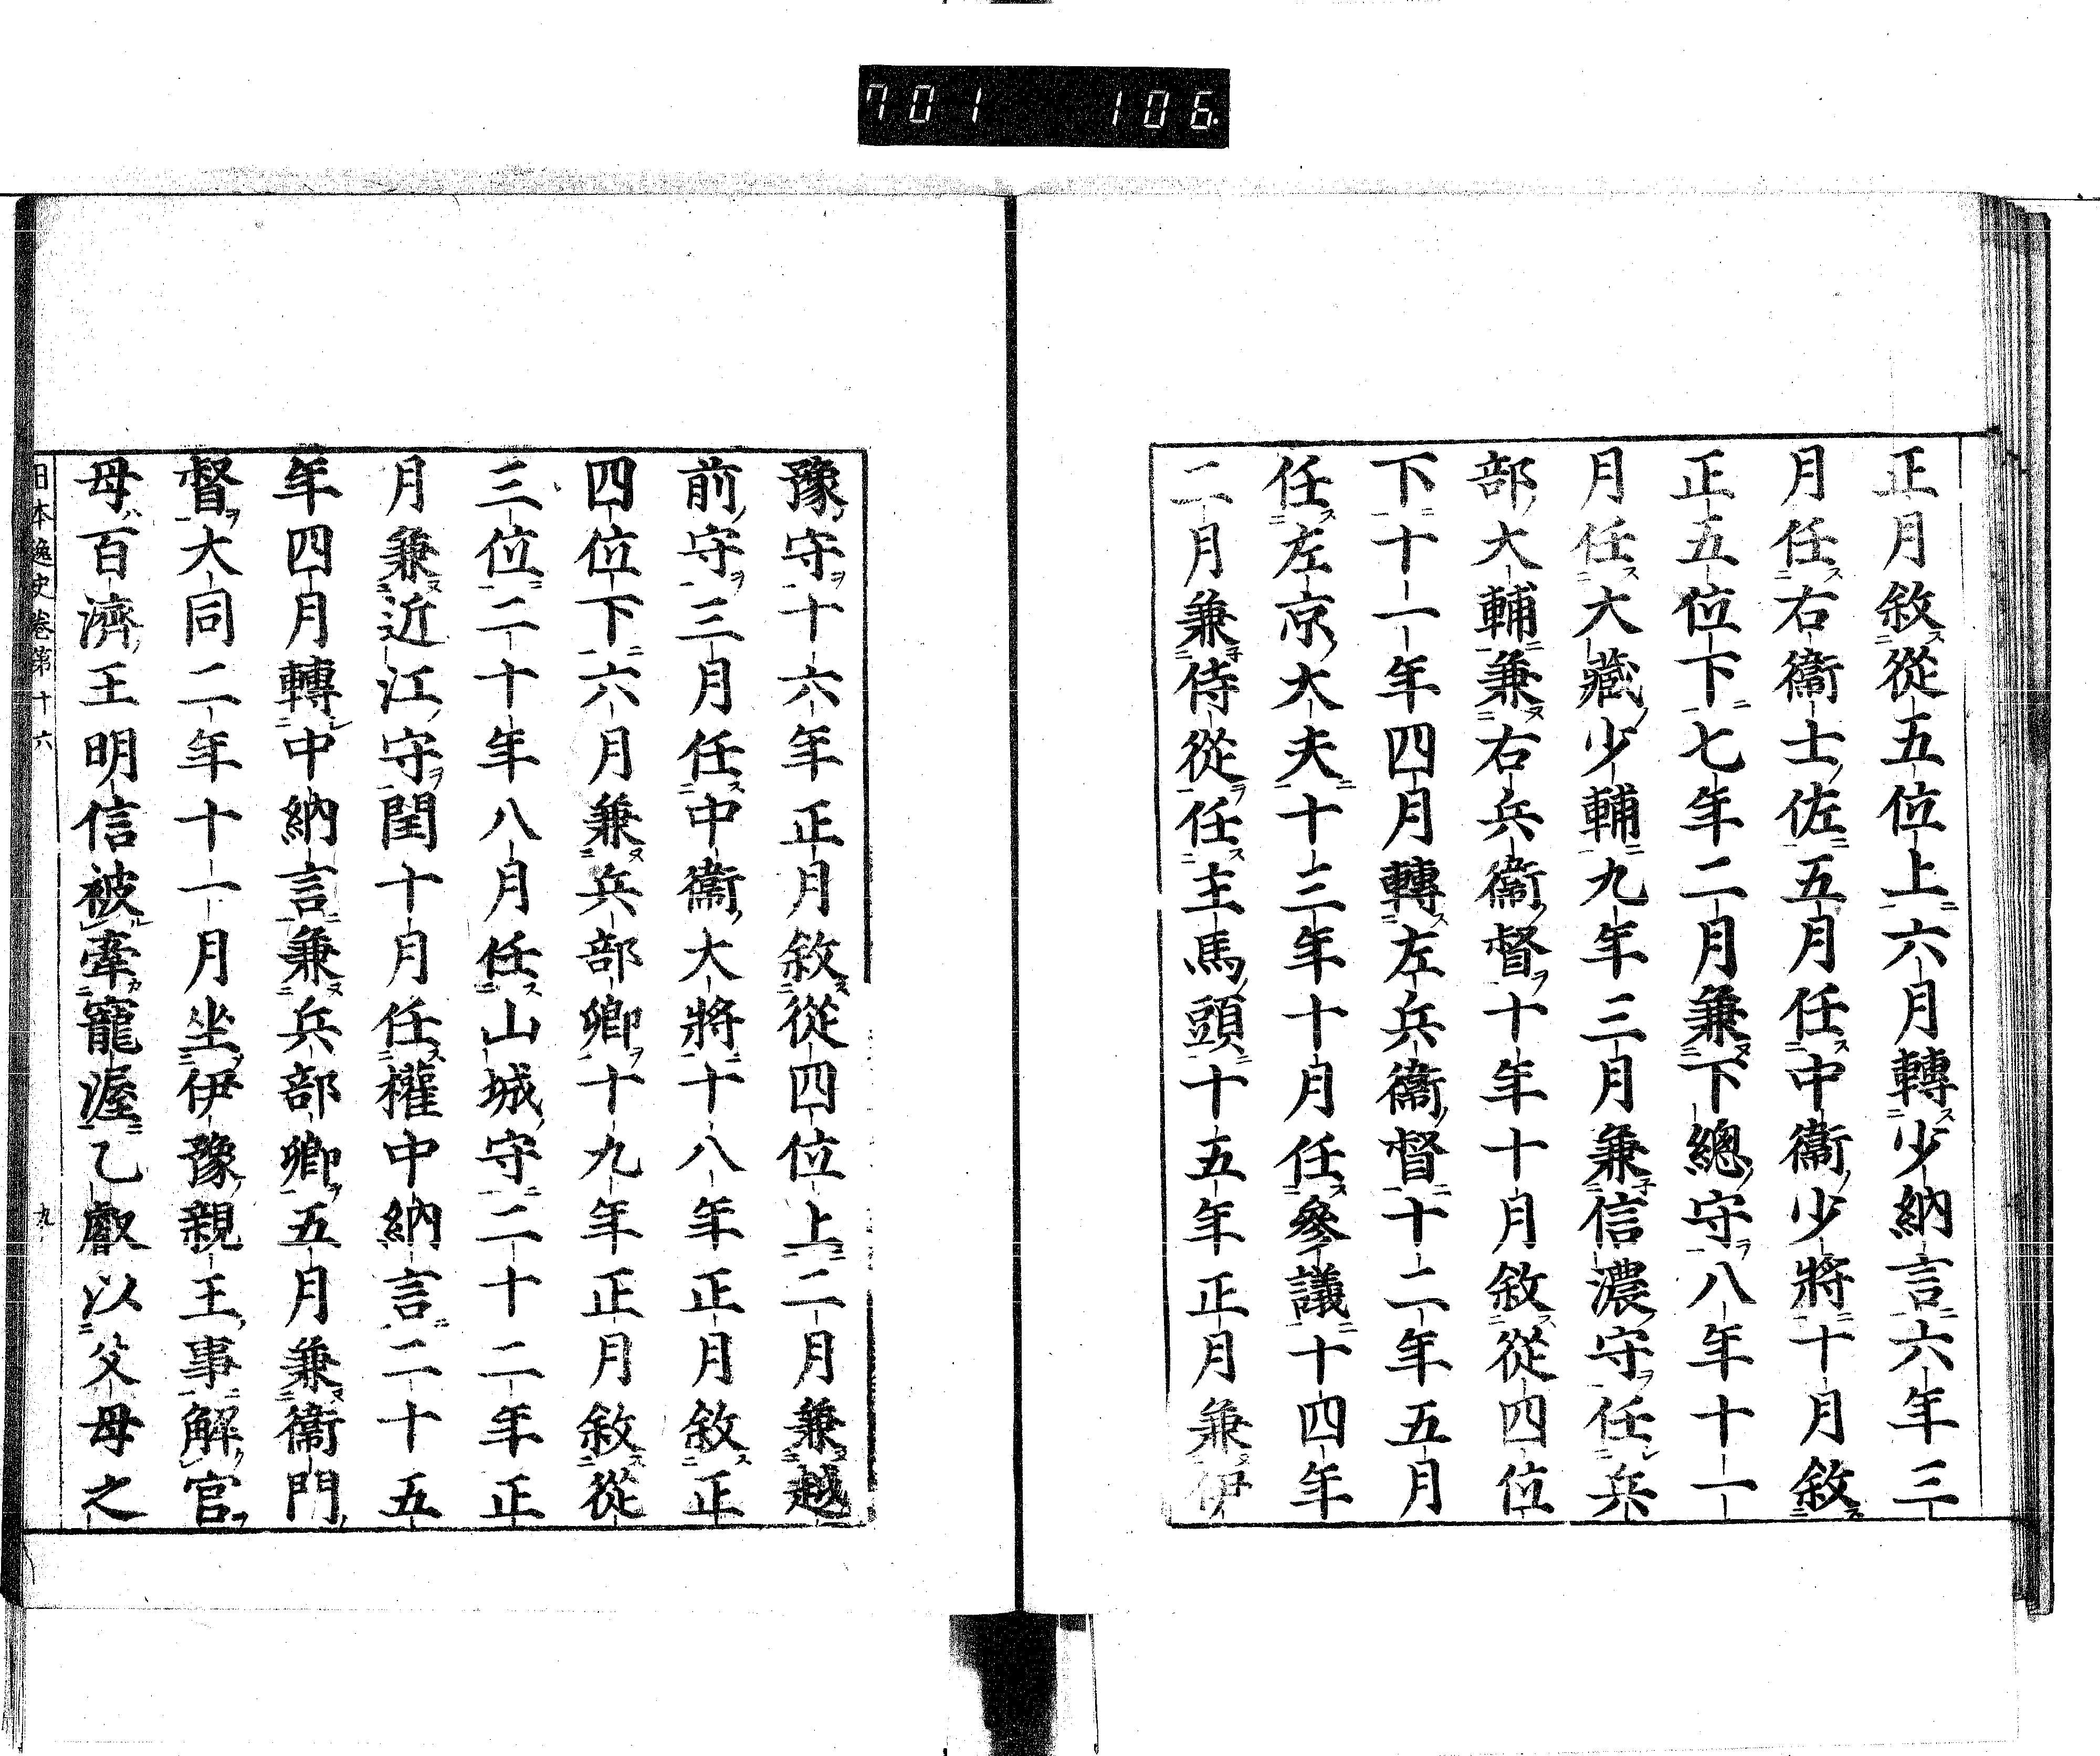 701 106
正月敘從五位上六月轉少納言六年三
月任右衞士佐五月任中衞少將十月敘
正五位下七年二月兼下總守八年十一
月任大藏少輔九年三月兼信濃守任兵
部大輔兼右兵衞督十年十月敘從四位
下十一年四月轉左兵衞督十二年五月
任左京大夫十三年十月任參議十四年
二月兼侍從任主馬頭十五年正月兼伊
豫守十六年正月敘從四位上二月兼越
前守三月任中衞大將十八年正月敘正
四位下六月兼兵部卿十九年正月敘從
三位二十年八月任山城守二十二年正
月兼近江守閏十月任權中納言二十五
年四月轉中納言兼兵部卿五月兼衞門
督大同二年十一月坐伊豫親王事解官
母百濟王明信被牽寵渥乙叡以父母之
日本逸史卷第十六 九